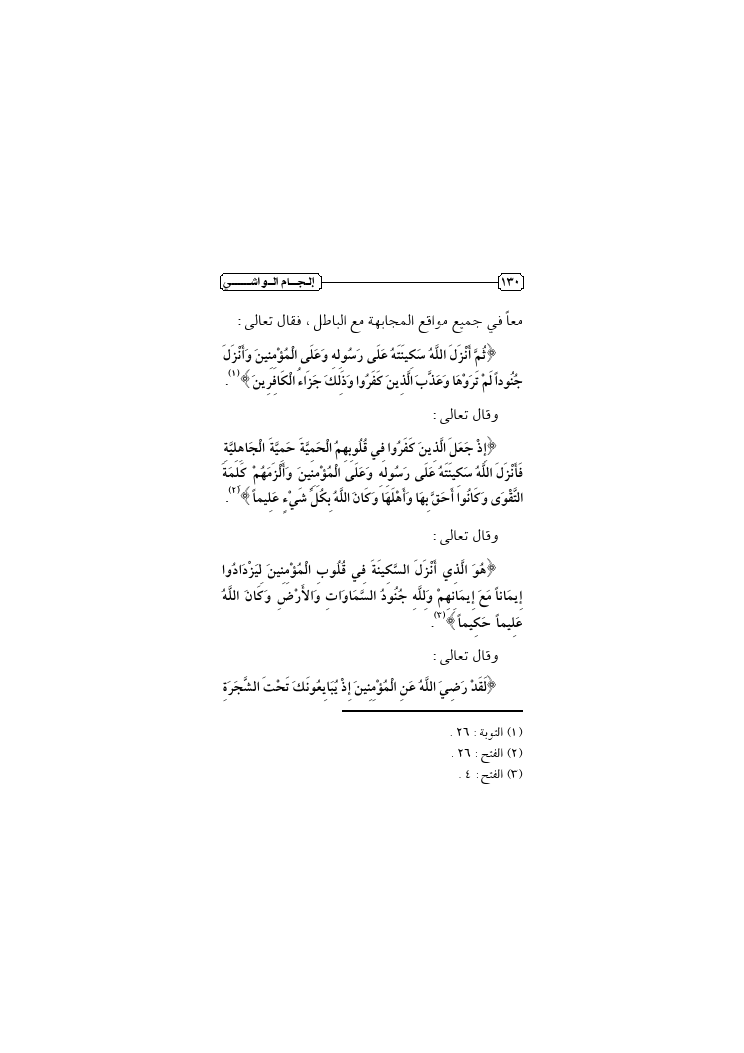 ١٣٠ إلجـام الـواشـــي
معاً في جميع مواقع المجابهة مع الباطل ، فقال تعالى :
﴿ثُمَّ أَنْزَلَ اللَّهُ سَكينَتَهُ عَلَى رَسُوله وَعَلَى الْمُؤْمنينَ وَأَنْزَلَ
جُنُوداً لَمْ تَرَوْهَا وَعَذَّبَ الَّذينَ كَفَرُوا وَذَلِكَ جَزَاءُ الْكَافِرِينَ﴾(١).
وقال تعالى :
﴿إِذْ جَعَلَ الَّذينَ كَفَرُوا فِي قُلُوبِهِمُ الْحَمِيَّةَ حَميَّةَ الْجَاهليَّة
فَأَنْزَلَ اللَّهُ سَكينَتَهُ عَلَى رَسُوله وَعَلَى الْمُؤْمنِينَ وَأَلْزَمَهُمْ كَلَمَةَ
التَّقْوَى وَكَانُوا أَحَقَّ بِهَا وَأَهْلَهَا وَكَانَ اللَّهُ بِكُلِّ شَيْءٍ عَلِيماً﴾(٢).
وقال تعالى :
﴿هُوَ الَّذِي أَنْزَلَ السَّكِينَةَ فِي قُلُوبِ الْمُؤْمِنِينَ لِيَزْدَادُوا
إِيمَاناً مَعَ إِيمَانِهِمْ وَللَّهِ جُنُودُ السَّمَاوَاتِ وَالأَرْضِ وَكَانَ اللَّهُ
عَلِيماً حَكِيماً﴾(٣).
وقال تعالى :
﴿لَقَدْ رَضِيَ اللَّهُ عَنِ الْمُؤْمِنِينَ إِذْ يُبَايِعُونَكَ تَحْتَ الشَّجَرَةِ
(١) التوبة : ٢٦ .
(٢) الفتح : ٢٦ .
(٣) الفتح : ٤ .